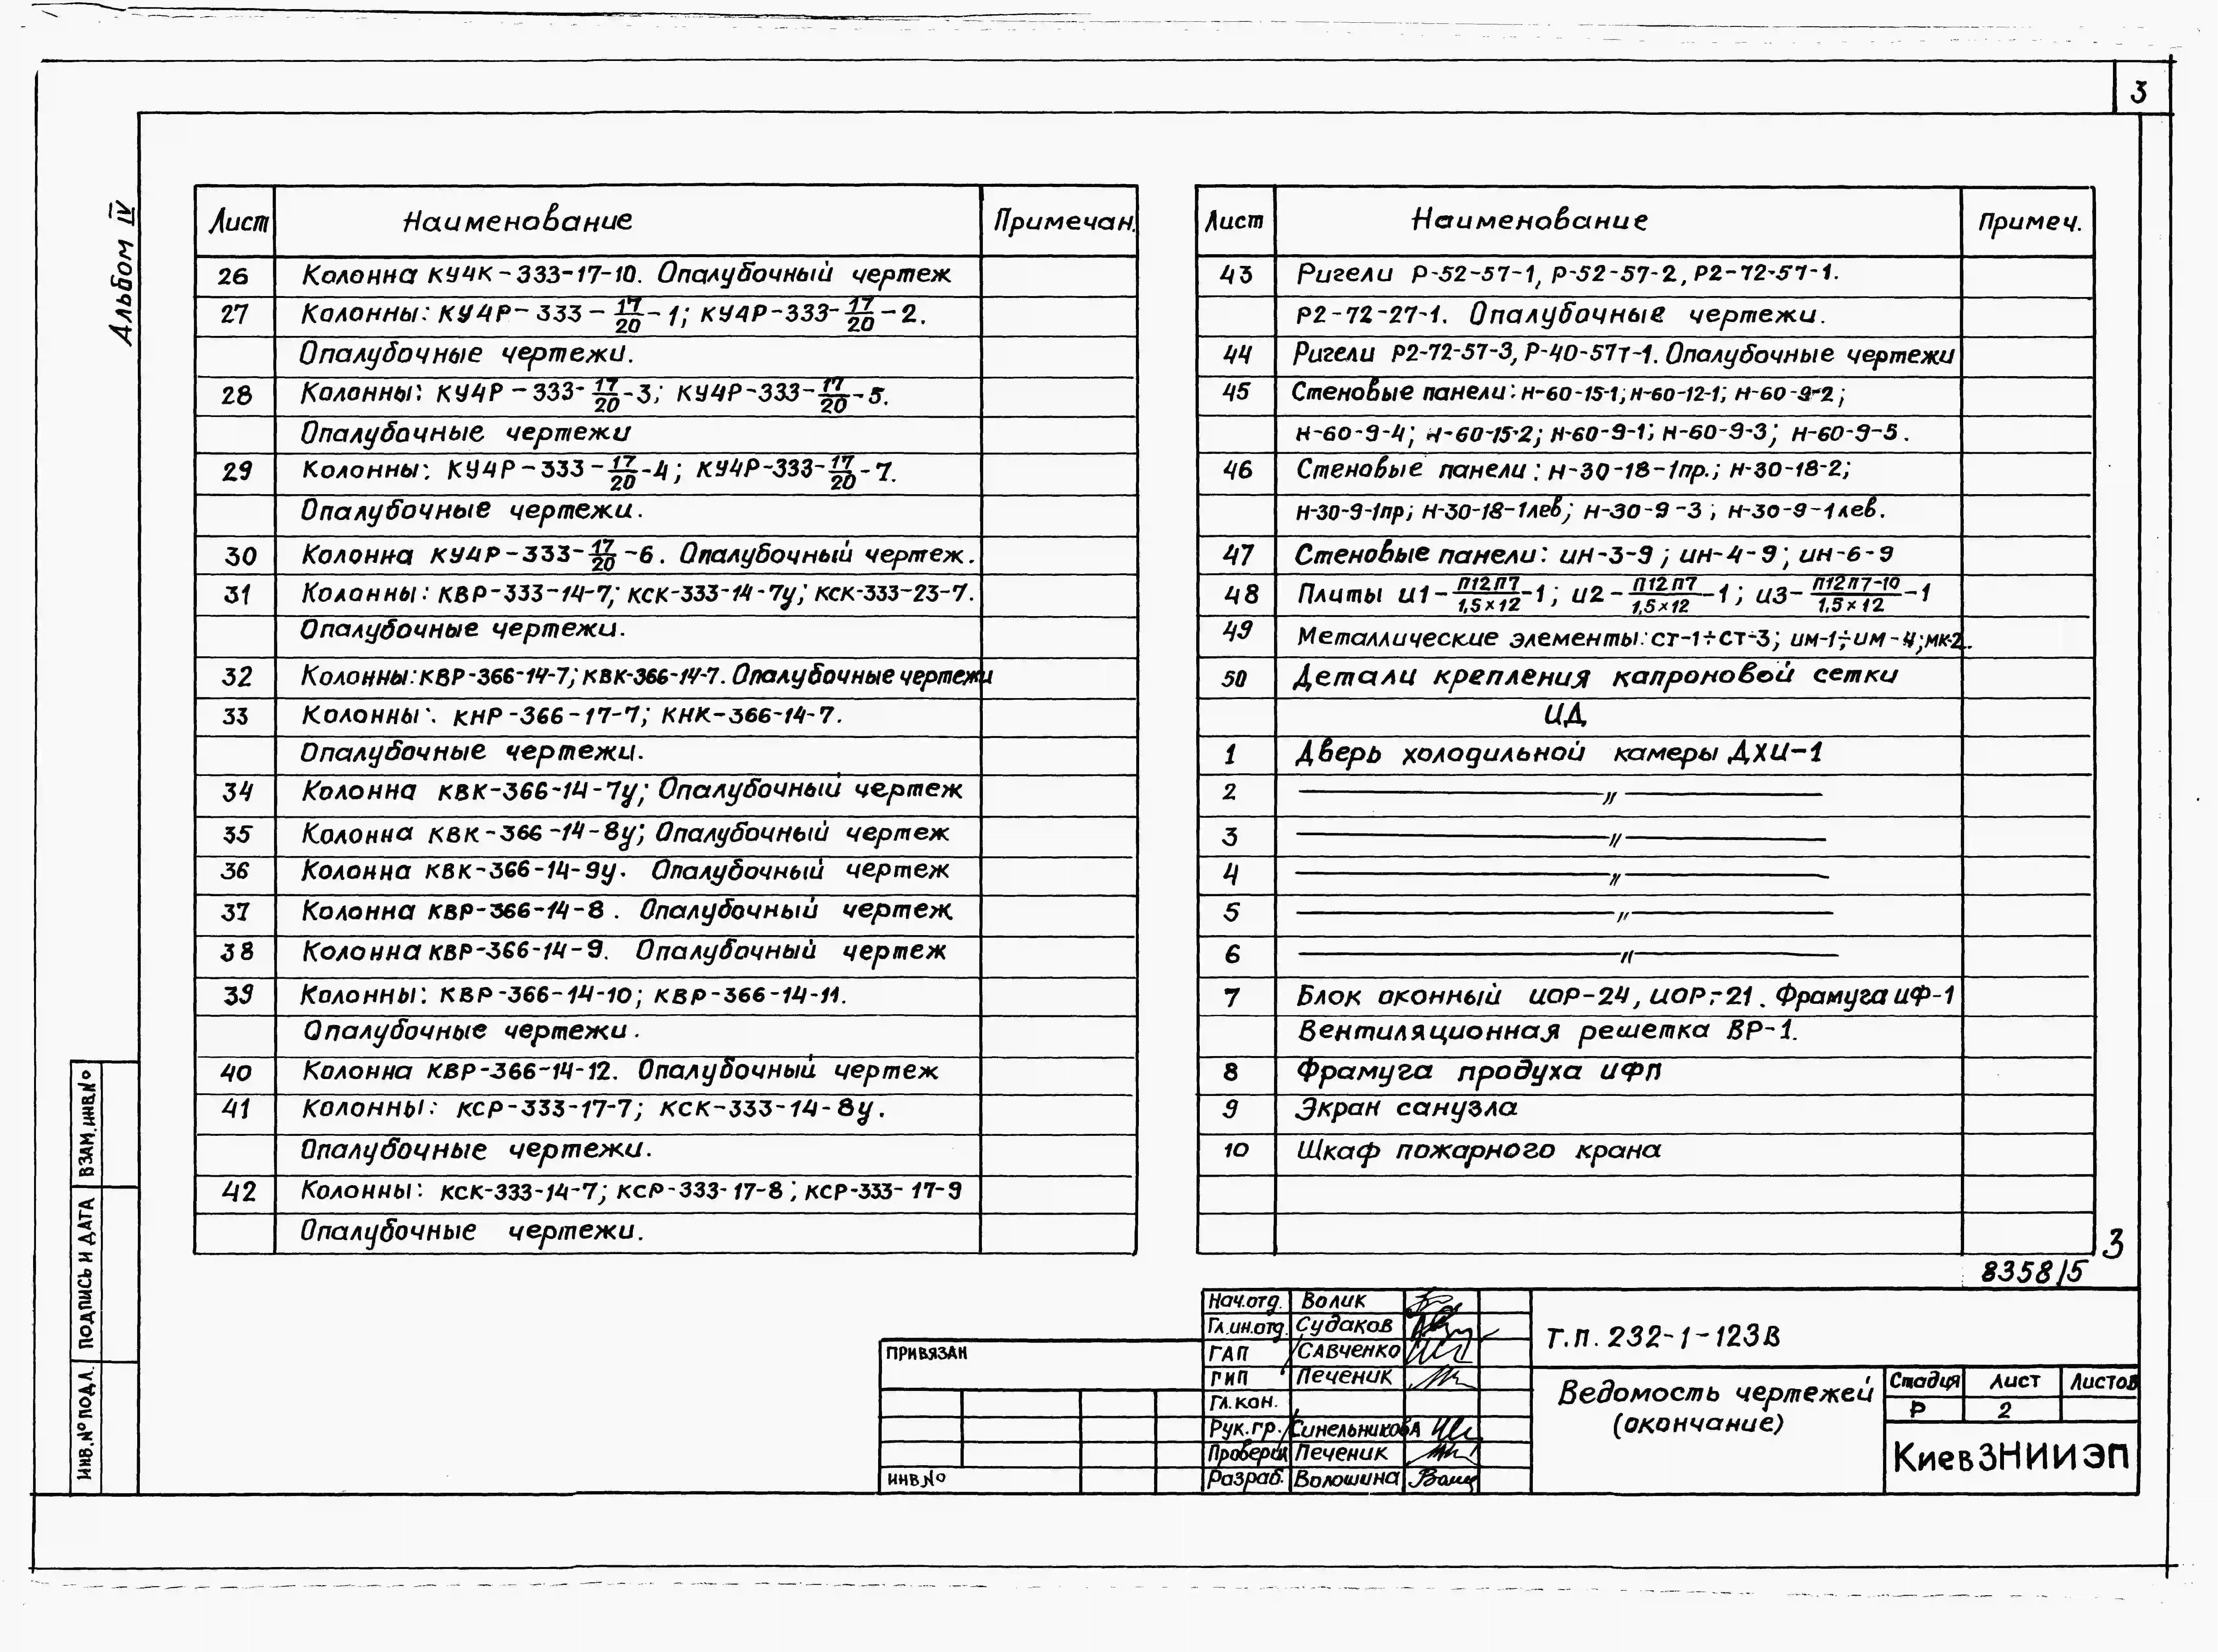 3
Альбом IV
Лист Наименование Примечан.
26 Колонна КУ4К-333-17-10. Опалубочный чертеж
27 Колонны: КУ4Р-333-17/20-1; КУ4Р-333-17/20-2.
Опалубочные чертежи.
28 Колонны: КУ4Р-333-17/20-3; КУ4Р-333-17/20-5.
Опалубочные чертежи
29 Колонны: КУ4Р-333-17/20-4; КУ4Р-333-17/20-7.
Опалубочные чертежи.
30 Колонна КУ4Р-333-17/20-6. Опалубочный чертеж.
31 Колонны: КВР-333-14-7; КСК-333-14-7у; КСК-333-23-7.
Опалубочные чертежи.
32 Колонны: КВР-366-14-7; КВК-366-14-7. Опалубочные чертежи
33 Колонны: КНР-366-17-7; КНК-366-14-7.
Опалубочные чертежи.
34 Колонна КВК-366-14-7у; Опалубочный чертеж
35 Колонна КВК-366-14-8у; Опалубочный чертеж
36 Колонна КВК-366-14-9у. Опалубочный чертеж
37 Колонна КВР-366-14-8. Опалубочный чертеж
38 Колонна КВР-366-14-9. Опалубочный чертеж
39 Колонны: КВР-366-14-10; КВР-366-14-11.
Опалубочные чертежи.
40 Колонна КВР-366-14-12. Опалубочный чертеж
41 Колонны: КСР-333-17-7; КСК-333-14-8у.
Опалубочные чертежи.
42 Колонны: КСК-333-14-7; КСР-333-17-8; КСР-333-17-9
Опалубочные чертежи.
Лист Наименование Примеч.
43 Ригели Р-52-57-1, Р-52-57-2, Р2-72-57-1.
Р2-72-27-1. Опалубочные чертежи.
44 Ригели Р2-72-57-3, Р-40-57т-1. Опалубочные чертежи
45 Стеновые панели: Н-60-15-1; Н-60-12-1; Н-60-9-2;
Н-60-9-4; Н-60-15-2; Н-60-9-1; Н-60-9-3; Н-60-9-5.
46 Стеновые панели: Н-30-18-1пр.; Н-30-18-2;
Н-30-9-1пр; Н-30-18-1лев; Н-30-9-3; Н-30-9-1лев.
47 Стеновые панели: ИН-3-9; ИН-4-9; ИН-6-9
48 Плиты И1-П12П7/1,5×12-1; И2-П12П7/1,5×12-1; И3-П12П7-10/1,5×12-1
49 Металлические элементы: СТ-1÷СТ-3; ИМ-1÷ИМ-4; МК-2.
50 Детали крепления капроновой сетки
ИД
1 Дверь холодильной камеры ДХИ-1
2 — " —
3 — " —
4 — " —
5 — " —
6 — " —
7 Блок оконный ИОР-24, ИОР-21. Фрамуга ИФ-1
Вентиляционная решетка ВР-1.
8 Фрамуга продуха ИФП
9 Экран санузла
10 Шкаф пожарного крана
3
8358/5
Нач.отд. Волик
Гл.ин.отд. Судаков
ГАП Савченко
ГИП Печеник
Гл.кон.
Рук.гр. Синельникова
Проверил Печеник
Разраб. Волошина
ПРИВЯЗАН
ИНВ.№
Т.П. 232-1-123В
Ведомость чертежей
(окончание)
Стадия Лист Листов
Р 2
КиевЗНИИЭП
ВЗАМ.ИНВ.№
ПОДПИСЬ И ДАТА
ИНВ.№ПОДЛ.